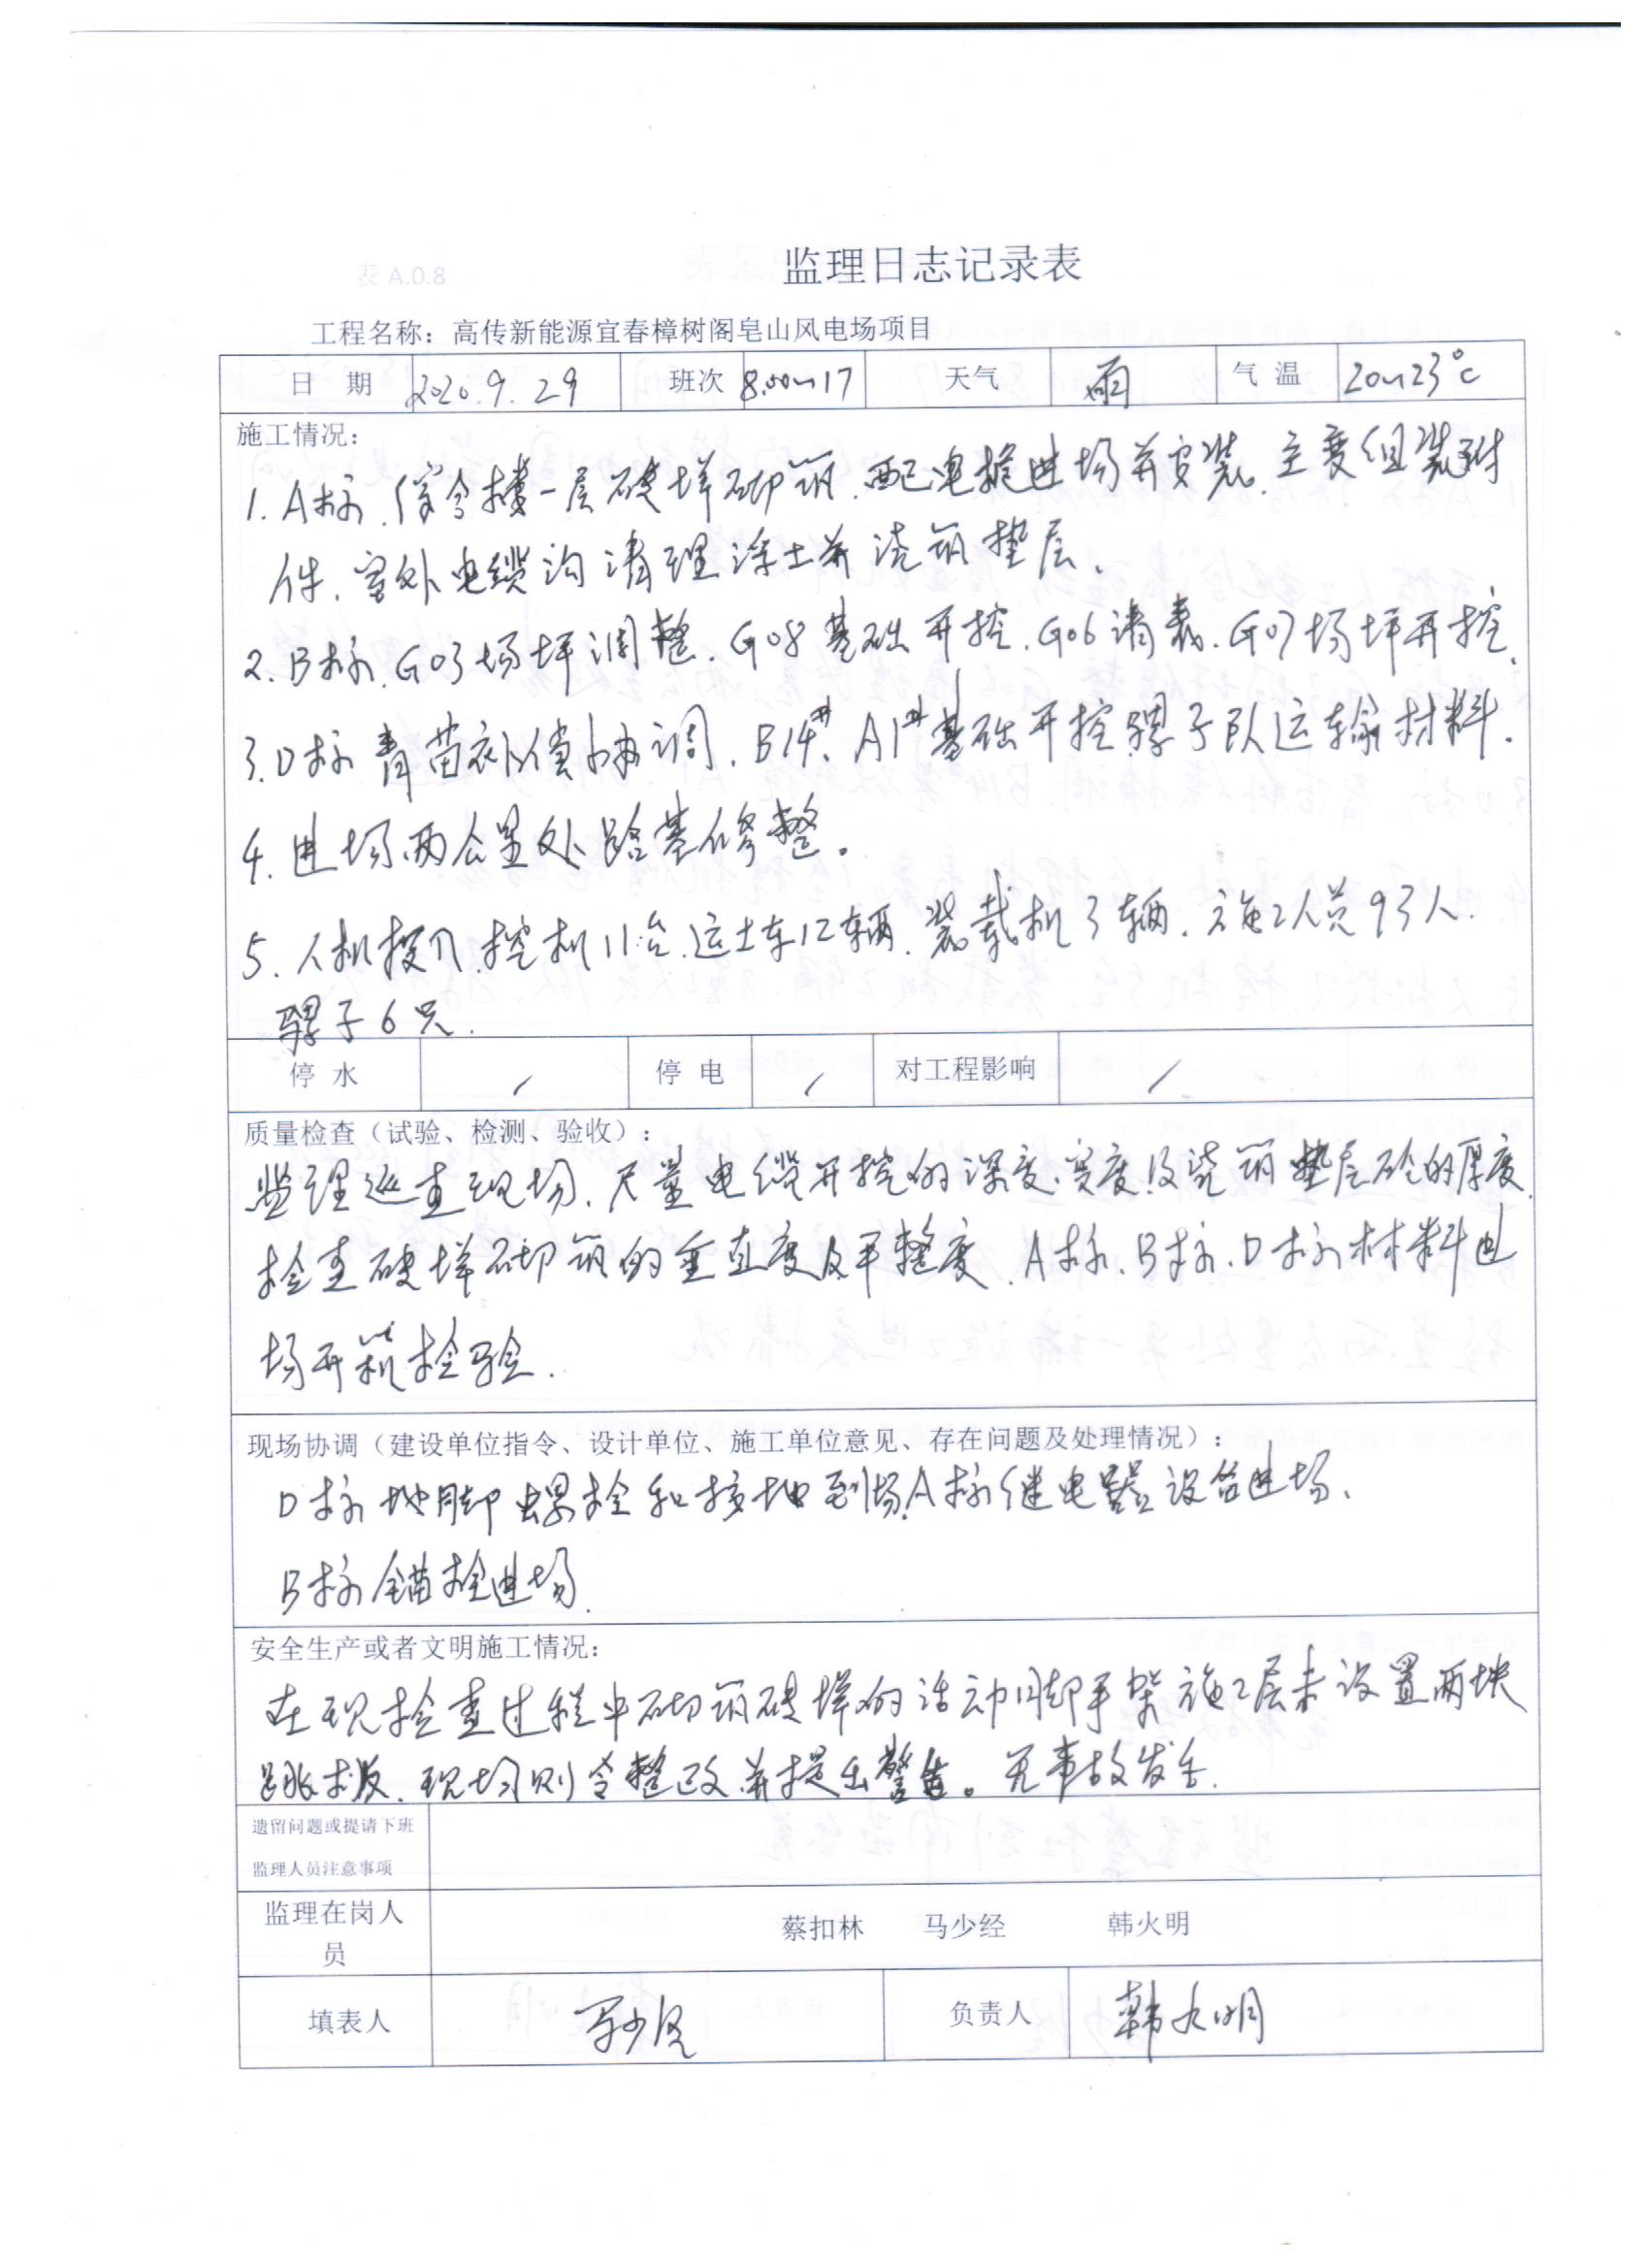 监理日志记录表
工程名称：高传新能源宜春樟树阁皂山风电场项目
日 期 2020.9.29 班次 8.00~17 天气 雨 气 温 20~23°C
施工情况：
1. A标.综合楼一层砖墙砌筑.配电柜进场并安装.主变组装附
件.室外电缆沟清理浮土并浇筑垫层、
2. B标.G03场坪调整.G08基础开挖.G06清表.G07场坪开挖.
3. D标青苗补偿协调.B14#、A1#基础开挖骡子队运输材料.
4. 进场两公里处路基修整。
5. 人机投入.挖机11台.运土车12辆.装载机3辆.施工人员93人.
骡子6只.
停 水 / 停 电 / 对工程影响 /
质量检查（试验、检测、验收）：
监理巡查现场.尺量电缆开挖的深度、宽度及浇筑垫层砼的厚度.
检查砖墙砌筑的垂直度及平整度.A标.B标.D标材料进
场开箱检验.
现场协调（建设单位指令、设计单位、施工单位意见、存在问题及处理情况）：
D标地脚螺栓和接地到场.A标继电器设备进场、
B标锚栓进场.
安全生产或者文明施工情况：
在现检查过程中砌筑砖墙的活动脚手架施工层未设置两块
跳板.现场则令整改并提出警告。无事故发生.
遗留问题或提请下班
监理人员注意事项
监理在岗人 蔡扣林 马少经 韩火明
员
填表人 马少经 负责人 韩火明